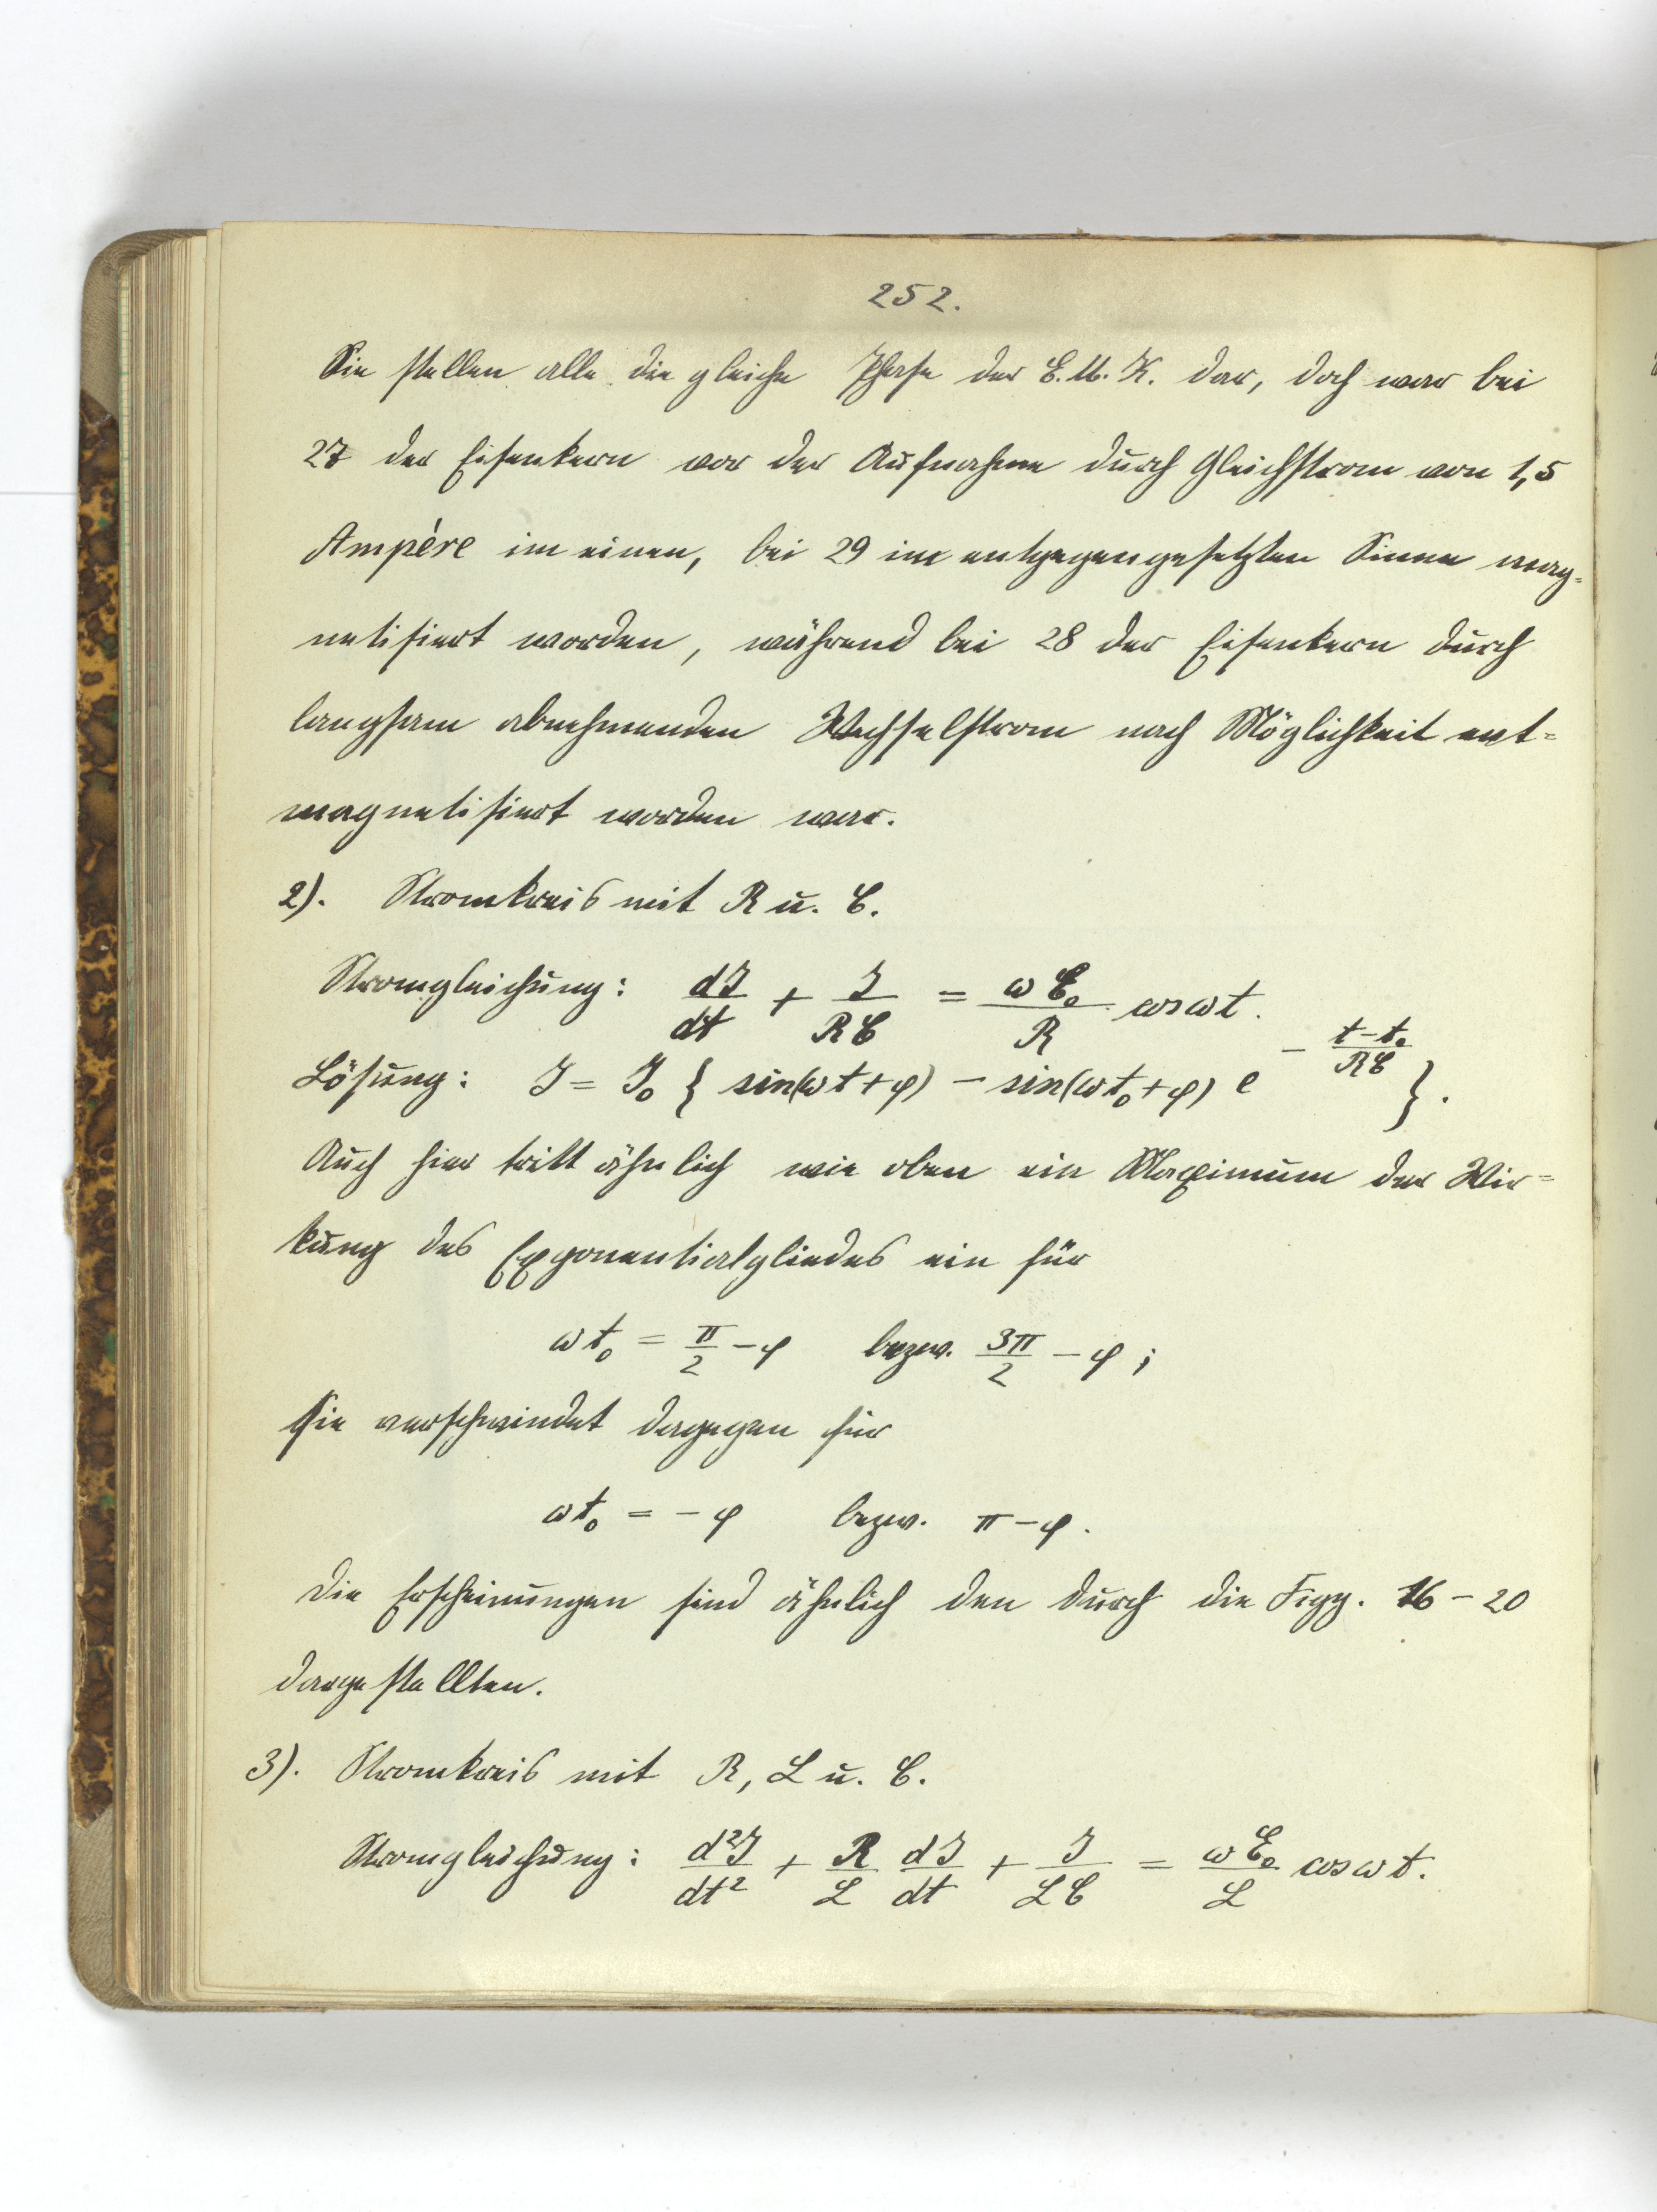 252.
Sie stellen alle die gleiche Phase der E.M.K. dar, doch war bei
27 der Eisenkern vor der Aufnahme durch Gleichstrom von 1,5
Ampère im einen, bei 29 im entgegengesetzten Sinne mag=
netisiert worden, während bei 28 der Eisenkern durch
langsam abnehmenden Wechselstrom nach Möglichkeit ent=
magnetisiert worden war.
2). Stromkreis mit R u. C.
Stromgleichung: dJ/dt + J/RC = ωE₀/R cos ωt.
Lösung: J = J₀ { sin(ωt+φ) − sin(ωt₀+φ) e^(−(t−t₀)/RC) }.
Auch hier tritt ähnlich wie oben ein Maximum der Wir=
kung des Exponentialgliedes ein für
ωt₀ = π/2 − φ bezw. 3π/2 − φ;
sie verschwindet dagegen für
ωt₀ = − φ bezw. π − φ.
Die Erscheinungen sind ähnlich den durch die Figg. 16 − 20
dargestellten.
3). Stromkreis mit R, L u. C.
Stromgleichung: d²J/dt² + R/L dJ/dt + J/LC = ωE₀/L cos ωt.